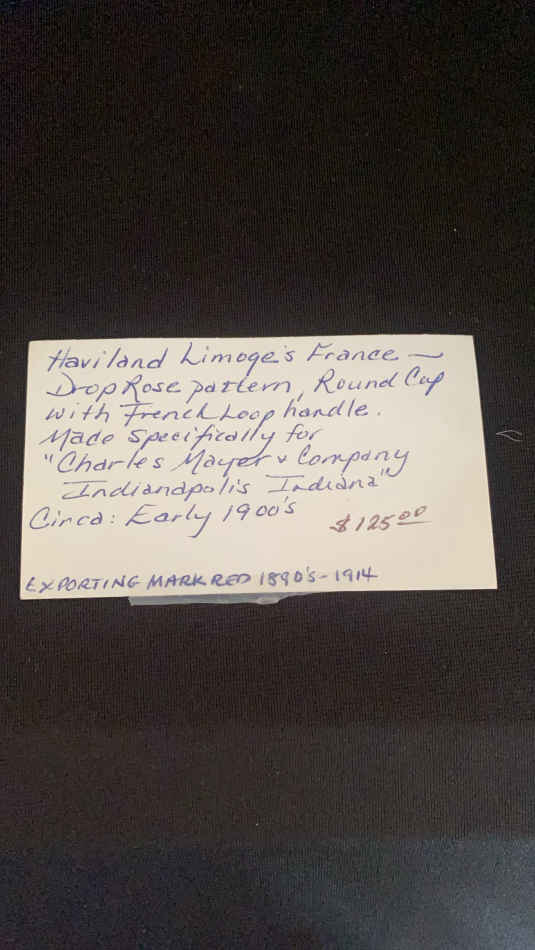 Haviland Limoge's France —
Drop Rose pattern, Round Cup
with French Loop handle.
Made Specifically for
"Charles Mayer & Company
Indianapolis Indiana"
Circa: Early 1900's
$125.00
EXPORTING MARK RED 1890'S - 1914